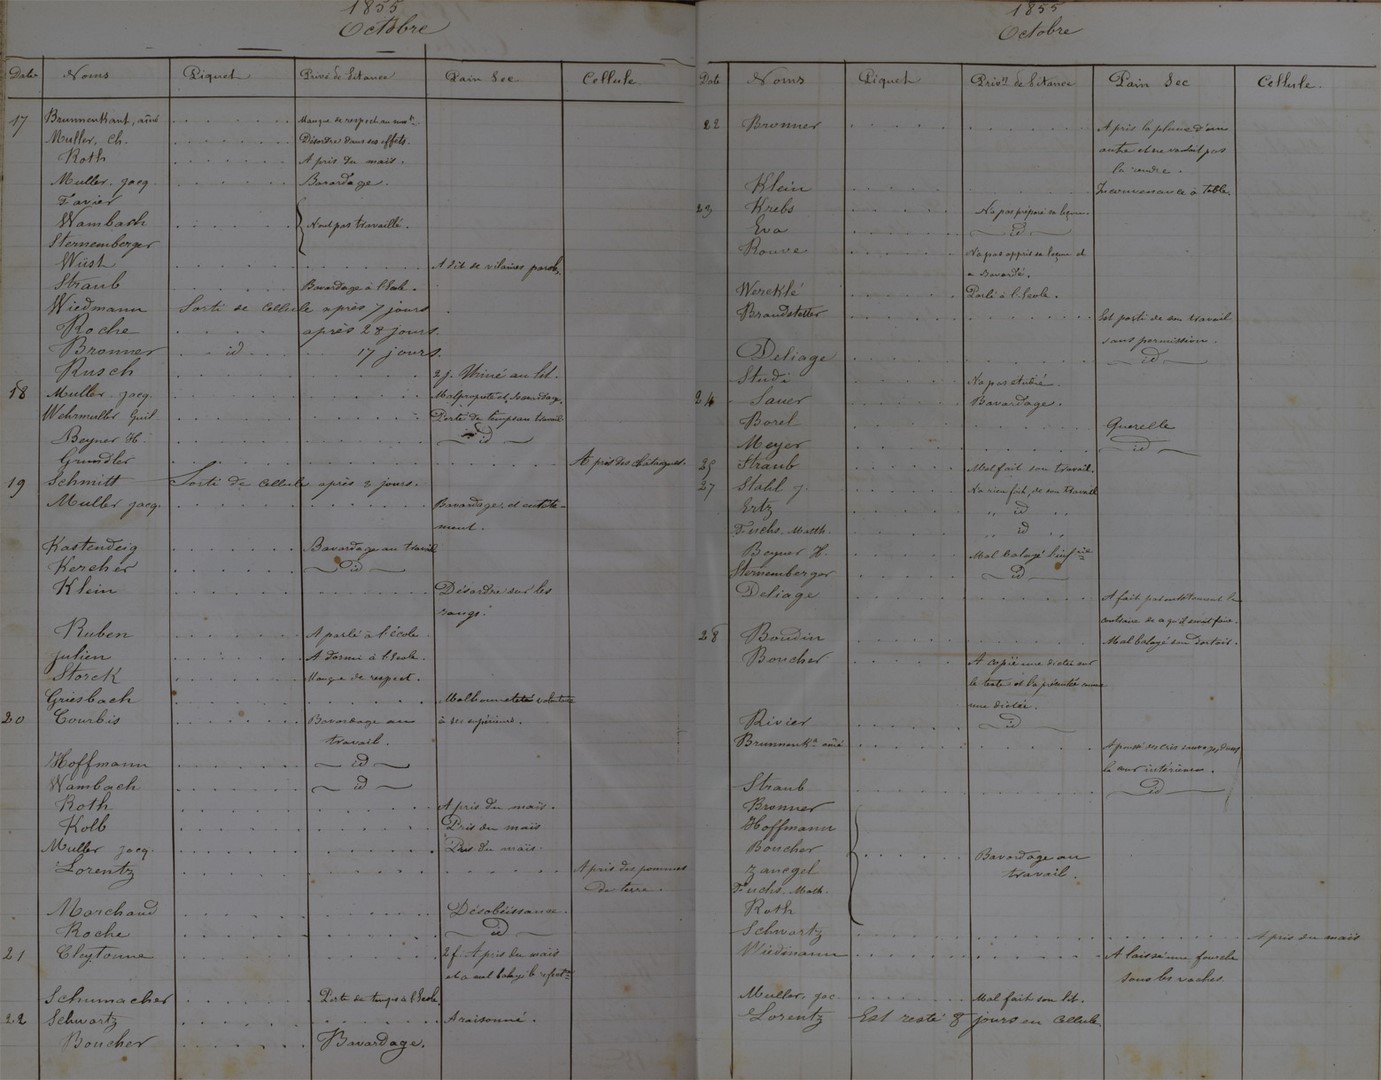 1855
Octobre
Date Noms Piquet Privé de Pitance Pain Sec Cellule.
17 Brunnenkant, ainé Manque de respect au
Muller, Ch. Désordre dans ses effets.
Roth A pris du maïs.
Muller. Jacq. Bavardage.
Favier
Wambach N'ont pas travaillé.
Sternemberger
Wüst A dit de vilaines parol.
Straub Bavardage à l'Ecole.
Wiedmann Sorti de Cellule après 7 jours
Roche après 28 jours.
Bronner id 17 jours.
Rusch 2 j. Uriné au lit.
18 Muller. Jacq. Malpropreté et bavardage.
Wehrmuller Guil. Perte de temps au travail
Beyner H. id
Grundler A pris des châtaignes.
19 Schmitt Sorti de Cellule après 2 jours.
Muller Jacq. Bavardage, et entête-
ment.
Kastendeig Bavardage au travail
Kercher id
Klein Désordre sur les
rangs.
Ruben A parlé à l'école
Julien A dormi à l'Ecole.
Storck Manque de respect.
Griesbach Malhonnêteté volontaire
20 Courbis Bavardage au à ses supérieurs.
travail.
Hoffmann id
Wambach id
Roth A pris du maïs.
Kolb Pris du maïs
Muller Jacq. Pris du maïs.
Lorentz A pris des pommes
de terre.
Marchand Désobéissance.
Roche id
21 Cleytonne 2 f A pris du maïs
et a mal balayé le
Schumacher Perte de temps à l'Ecole.
22 Schwartz A raisonné.
Boucher Bavardage.
1855
Octobre
Date Noms Piquet Priv. de Pitance Pain Sec Cellule.
22 Bronner A pris la plume d'un
autre et ne voulant pas
la rendre.
Klein Inconvenance à table.
23 Krebs N'a pas préparé sa leçon.
Eva id
Rouve N'a pas appris sa leçon et
a bavardé.
Wercklé Parlé à l'Ecole.
Brandstetter Est parti de son travail
sans permission.
Deliage id
Studi N'a pas étudié.
24 Sauer Bavardage.
Borel Querelle
Meyer id
25 Straub Mal fait son travail.
27 Stahl J. N'a rien fait, de son travail
Ertz " id "
Fuchs. Math. " id "
Beyner H. Mal balayé l'infrie
Sternemberger id
Deliage A fait
contraire de ce qu'il devait faire.
28 Boudin Mal balayé son dortoir.
Boucher A copié une dictée sur
le texte et l'a présentée comme
une dictée.
Rivier id
Brunnenkt ainé A poussé des cris sauvages dans
la cour intérieure.
Straub id
Bronner
Hoffmann
Boucher Bavardage au
Zanegel travail.
Fuchs. Math.
Roth
Schwartz A pris du maïs
Wiedmann A laissé une fourche
sous les vaches.
Muller, Jac. Mal fait son lit.
Lorentz Est resté 8 jours en Cellule